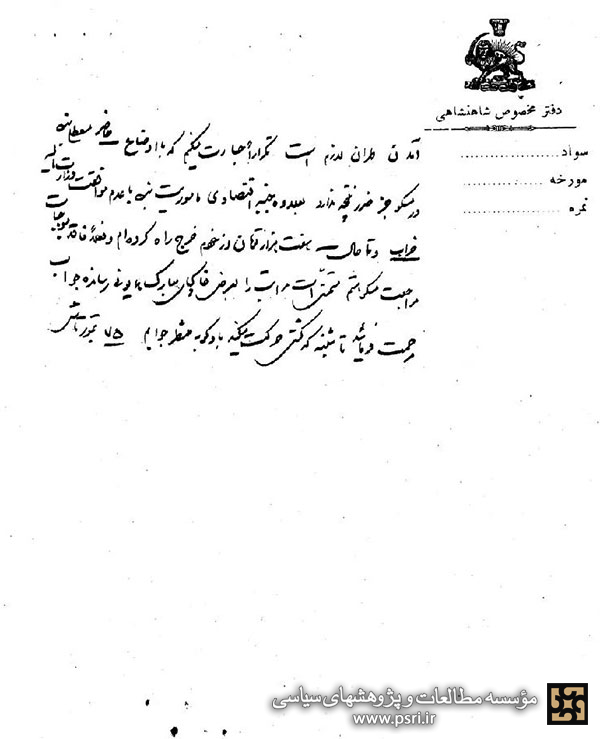 دفتر مخصوص شاهنشاهی
سواد
مورخه
نمره
آمدن طهران لازم است تکراراً جسارت میکنم که با اوضاع حاضر معطلی بنده
در مسکو جز ضرر نتیجه ندارد بعلاوه جنبه اقتصادی مأموریت بنده با عدم موافقت وزارت مالیه
خراب و تا حال هفت هزار تومان از خودم خرج راه کرده‌ام و فعلاً فاقد موجبات
مراجعت مسکو هستم متمنی است مراتب را بعرض خاکپای مبارک همایونی رسانده جواب
مرحمت فرمائید تا شنبه که کشتی حرکت میکند بادکوبه منتظر جوابم ۷۵ تیمورتاش
مؤسسه مطالعات و پژوهشهای سیاسی
www.psri.ir